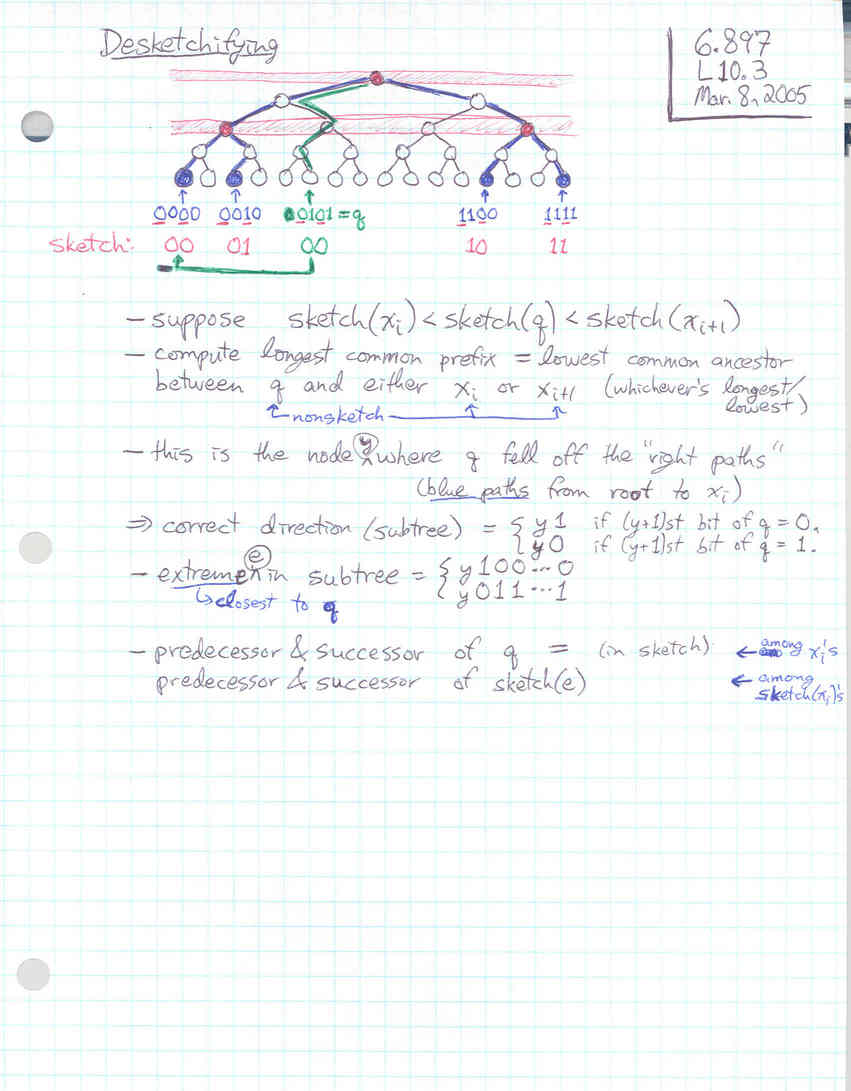 Desketchifying
6.897
L10.3
Mar. 8, 2005
0000 0010 0101 = q 1100 1111
sketch: 00 01 00 10 11
– suppose sketch(xi) < sketch(q) < sketch(xi+1)
– compute longest common prefix = lowest common ancestor
between q and either xi or xi+1 (whichever's longest/
lowest)
nonsketch
– this is the node y where q fell off the "right paths"
(blue paths from root to xi)
⇒ correct direction (subtree) = { y1 if (y+1)st bit of q = 0.
y0 if (y+1)st bit of q = 1.
– extreme e in subtree = { y100...0
y011...1
closest to q
– predecessor & successor of q = (in sketch) ← among xi's
predecessor & successor of sketch(e) ← among
sketch(xi)'s